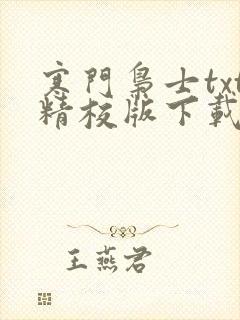 寒門梟士txt
精校版下載
王燕君